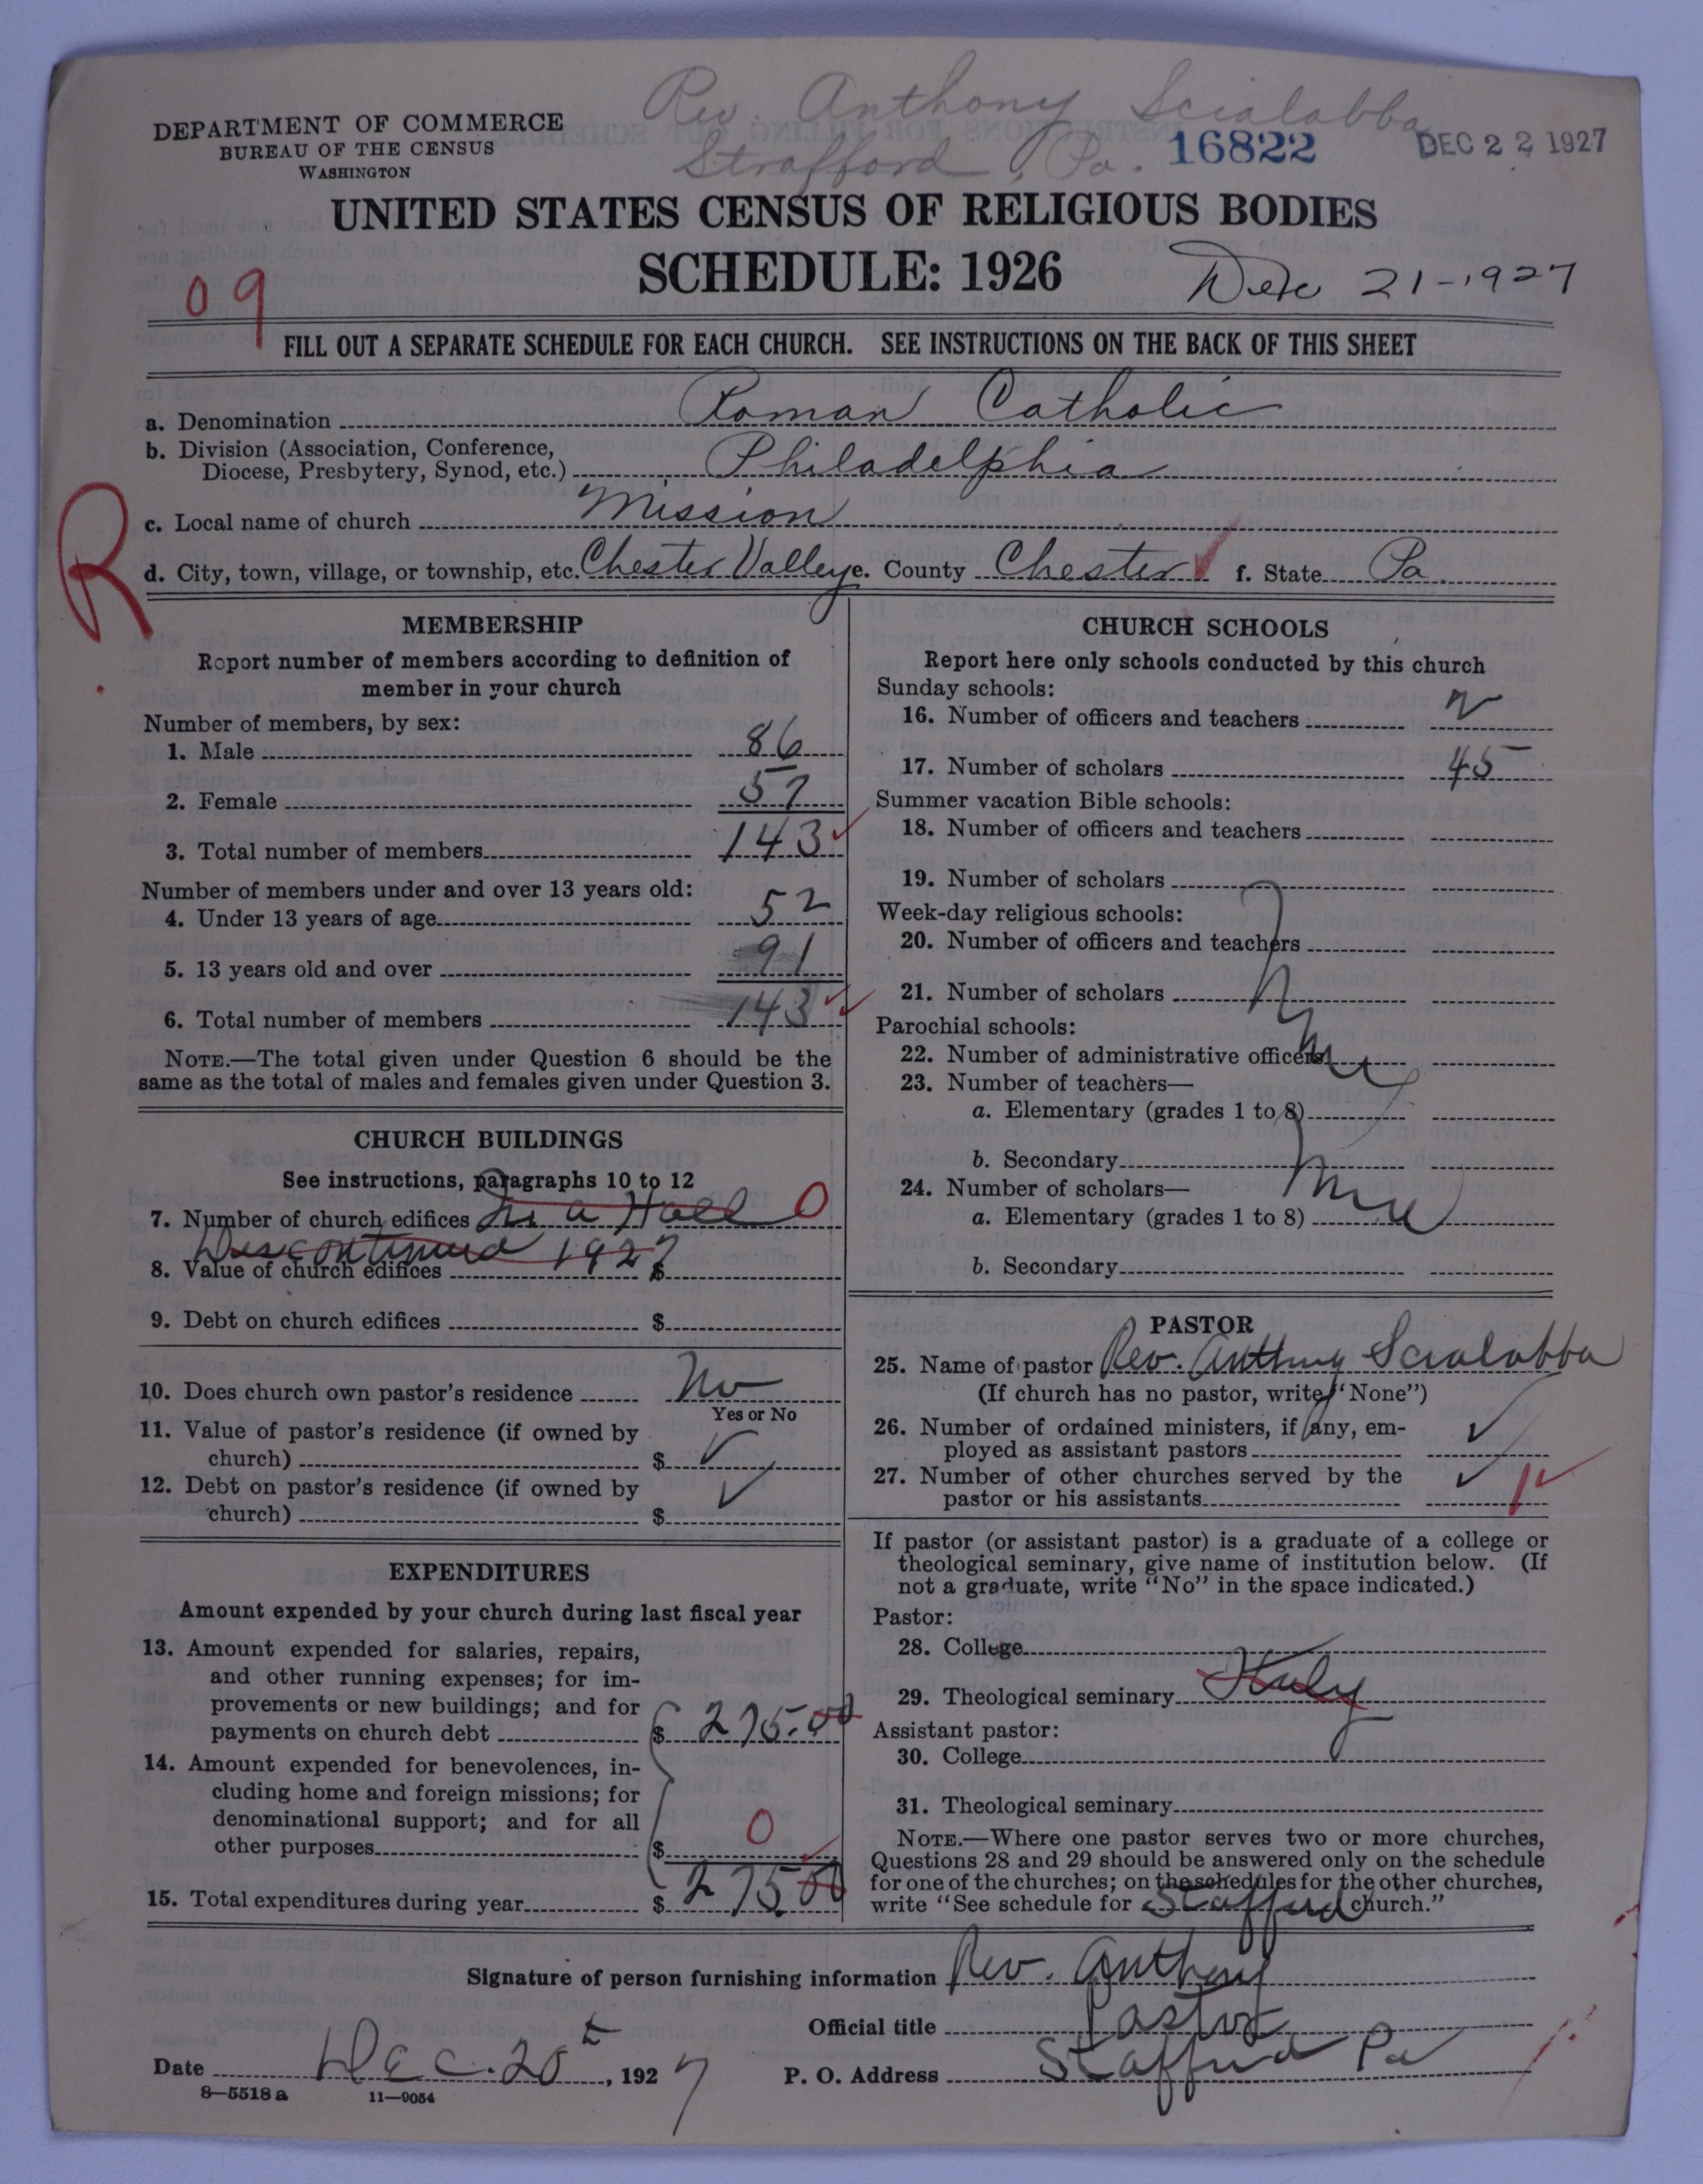 Rev. Anthony Scialabba
Strafford, Pa.
16822
DEC 22 1927
DEPARTMENT OF COMMERCE
BUREAU OF THE CENSUS
WASHINGTON
UNITED STATES CENSUS OF RELIGIOUS BODIES
SCHEDULE: 1926
Dec 21-1927
09
FILL OUT A SEPARATE SCHEDULE FOR EACH CHURCH. SEE INSTRUCTIONS ON THE BACK OF THIS SHEET
a. Denomination Roman Catholic
b. Division (Association, Conference,
Diocese, Presbytery, Synod, etc.) Philadelphia
R
c. Local name of church Mission
d. City, town, village, or township, etc. Chester Valley e. County Chester f. State Pa
MEMBERSHIP
Report number of members according to definition of
member in your church
Number of members, by sex:
1. Male 86
2. Female 57
3. Total number of members 143
Number of members under and over 13 years old:
4. Under 13 years of age 52
5. 13 years old and over 91
6. Total number of members 143
NOTE.—The total given under Question 6 should be the
same as the total of males and females given under Question 3.
CHURCH BUILDINGS
See instructions, paragraphs 10 to 12
7. Number of church edifices In a Hall 0
Discontinued 1927
8. Value of church edifices $
9. Debt on church edifices $
10. Does church own pastor's residence No
Yes or No
11. Value of pastor's residence (if owned by
church) $ ✓
12. Debt on pastor's residence (if owned by
church) $ ✓
EXPENDITURES
Amount expended by your church during last fiscal year
13. Amount expended for salaries, repairs,
and other running expenses; for im-
provements or new buildings; and for
payments on church debt $ 275.00
14. Amount expended for benevolences, in-
cluding home and foreign missions; for
denominational support; and for all
other purposes $ 0
15. Total expenditures during year $ 275.00
CHURCH SCHOOLS
Report here only schools conducted by this church
Sunday schools:
16. Number of officers and teachers 2
17. Number of scholars 45
Summer vacation Bible schools:
18. Number of officers and teachers
19. Number of scholars
Week-day religious schools:
20. Number of officers and teachers
21. Number of scholars
Parochial schools:
22. Number of administrative officers
23. Number of teachers—
a. Elementary (grades 1 to 8)
b. Secondary
24. Number of scholars—
a. Elementary (grades 1 to 8)
b. Secondary
PASTOR
25. Name of pastor Rev. Anthony Scialabba
(If church has no pastor, write "None")
26. Number of ordained ministers, if any, em-
ployed as assistant pastors ✓
27. Number of other churches served by the
pastor or his assistants ✓ 1✓
If pastor (or assistant pastor) is a graduate of a college or
theological seminary, give name of institution below. (If
not a graduate, write "No" in the space indicated.)
Pastor:
28. College
29. Theological seminary Italy
Assistant pastor:
30. College
31. Theological seminary
NOTE.—Where one pastor serves two or more churches,
Questions 28 and 29 should be answered only on the schedule
for one of the churches; on the schedules for the other churches,
write "See schedule for Stafford church."
Signature of person furnishing information Rev. Anthony
Official title Pastor
Date Dec. 20th, 1927 P. O. Address Stafford Pa
8—5518 a 11—9054